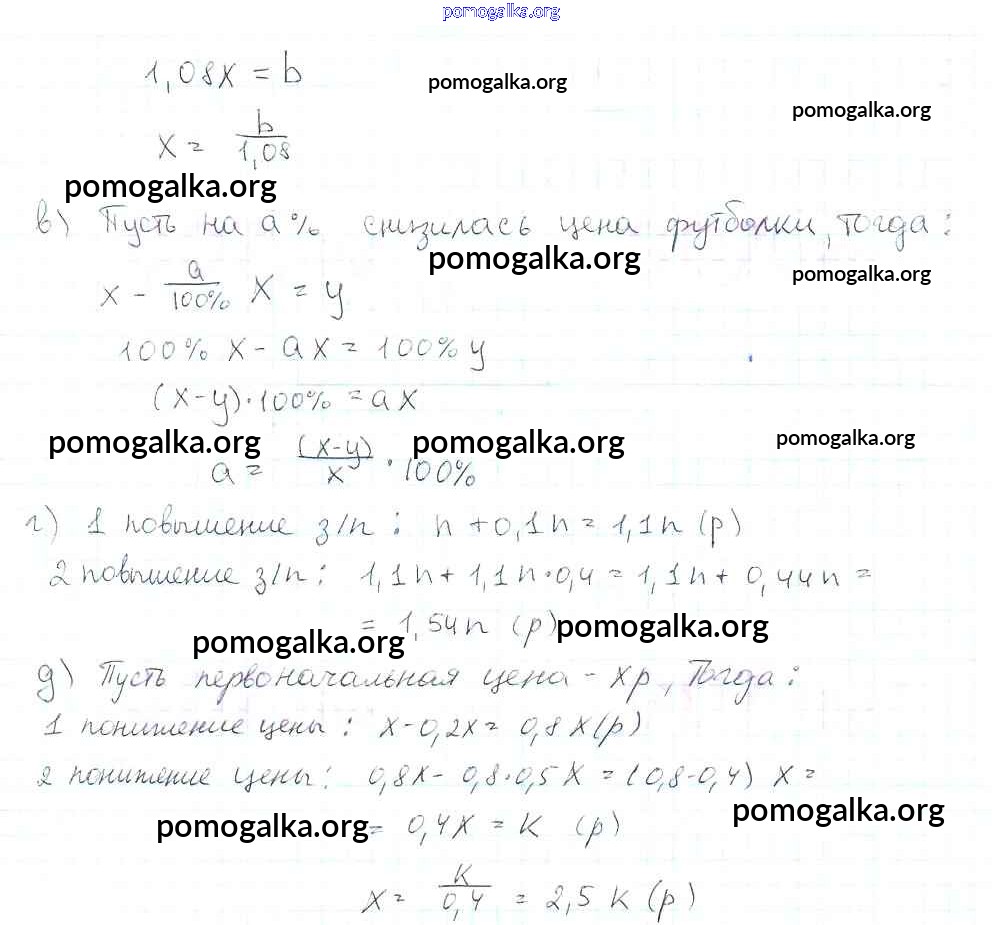 pomogalka.org
1,08x = b
pomogalka.org
pomogalka.org
x = b/1,08
pomogalka.org
в) Пусть на a% снизилась цена футболки, тогда:
pomogalka.org
pomogalka.org
x - a/100% x = y
100% x - ax = 100% y
(x-y)·100% = ax
pomogalka.org
pomogalka.org
pomogalka.org
a = (x-y)/x · 100%
г) 1 повышение з/п: n + 0,1n = 1,1n (р)
2 повышение з/п: 1,1n + 1,1n·0,4 = 1,1n + 0,44n =
= 1,54n (р)
pomogalka.org
pomogalka.org
д) Пусть первоначальная цена - xр, Тогда:
1 понижение цены: x - 0,2x = 0,8x (р)
2 понижение цены: 0,8x - 0,8·0,5x = (0,8-0,4) x =
pomogalka.org
pomogalka.org
= 0,4x = k (р)
x = k/0,4 = 2,5 k (р)